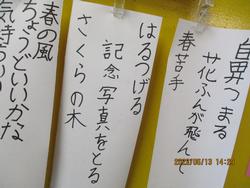 鼻つまる
花ふんが飛んで
春苦手
はるつげる
記念写真をとる
さくらの木
春の風
ちょうどいいかな
気持ちいい
2022/06/13 14:23